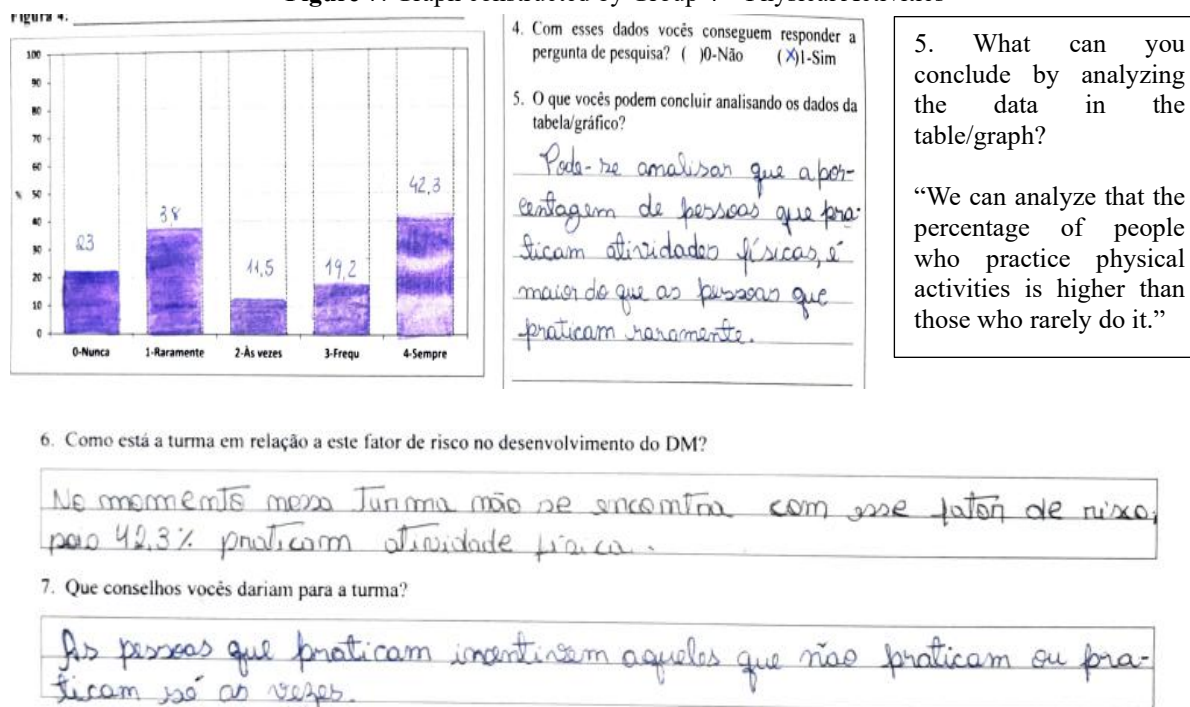 Figura 4.
100
90
80
70
60
% 50
40
30
20
10
0
23
38
11,5
19,2
42,3
0-Nunca 1-Raramente 2-Às vezes 3-Frequ 4-Sempre
4. Com esses dados vocês conseguem responder a
pergunta de pesquisa? ( )0-Não (X)1-Sim
5. O que vocês podem concluir analisando os dados da
tabela/gráfico?
Pode-se analisar que a por-
centagem de pessoas que pra-
ticam atividades físicas, é
maior do que as pessoas que
praticam raramente.
5. What can you
conclude by analyzing
the data in the
table/graph?
“We can analyze that the
percentage of people
who practice physical
activities is higher than
those who rarely do it.”
6. Como está a turma em relação a este fator de risco no desenvolvimento do DM?
No momento nossa Turma não se encontra com esse fator de risco,
pois 42,3% praticam atividade física.
7. Que conselhos vocês dariam para a turma?
As pessoas que praticam incentivem aqueles que não praticam ou pra-
ticam só as vezes.